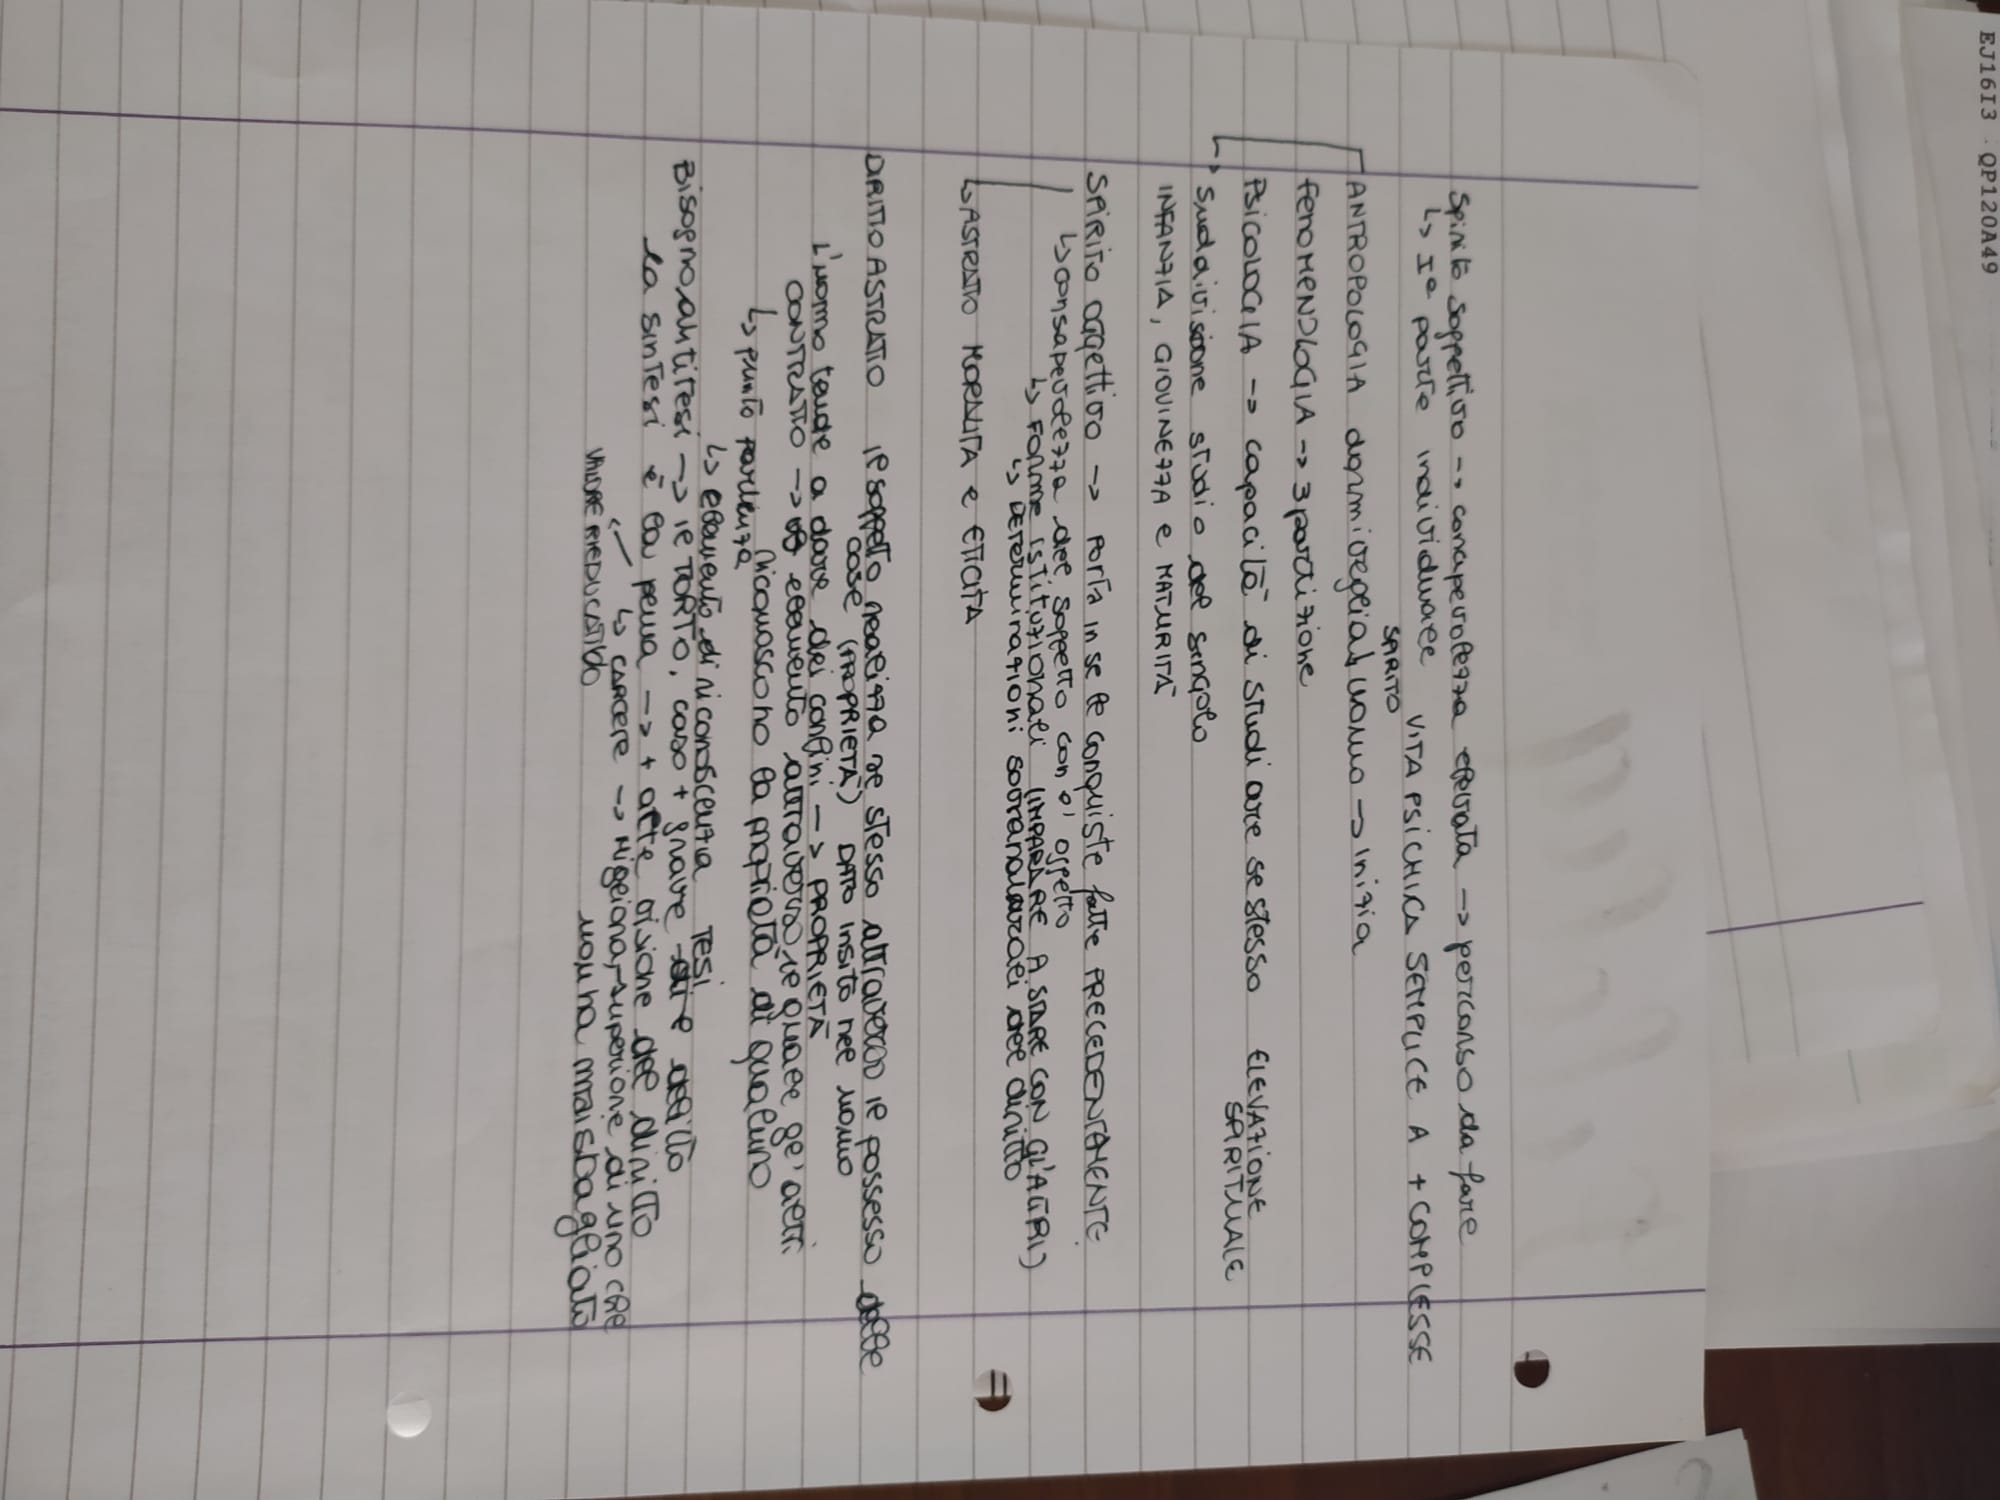 EJ16I3 QP120A49
Spirito soggettivo -> conapevolezza elevata -> percorso da fare
↳ Iª parte individuale VITA PSICHICA SEMPLICE A + COMPLESSE
SPIRITO
ANTROPOLOGIA dormiveglia uomo -> inizia
FENOMENOLOGIA -> 3partizione
PSICOLOGIA -> capacità di studiare se stesso ELEVAZIONE
SPIRITUALE
Suddivisione studio del singolo
INFANZIA, GIOVINEZZA e MATURITÀ
SPIRITO oggettivo -> PORTA in se le conquiste fatte PRECEDENTEMENTE
↳ consapevolezza del soggetto con l'oggetto
↳ FORME istituzionali (IMPARARE A STARE CON GL'ALTRI)
↳ DETERMINAZIONI sovranaturali del diritto
↳ ASTRATTO MORALITA e ETICITÀ
DIRITTO ASTRATTO il soggetto realizza se stesso attraverso il possesso delle
cose (PROPRIETÀ) DATO insito nel uomo
L'uomo tende a dare dei confini -> PROPRIETÀ
CONTRATTO -> elemento attraverso il quale gl'altri
riconoscono la proprietà di qualcuno
↳ punto partenza
↳ elemento di riconoscenza TESI
Bisogno antitesi -> il TORTO, caso + grave è il delitto
la sintesi è la pena -> + alte visione del diritto
↳ CARCERE -> Migliora, superiore di uno che
VALORE RIEDUCATIVO non ha mai sbagliato